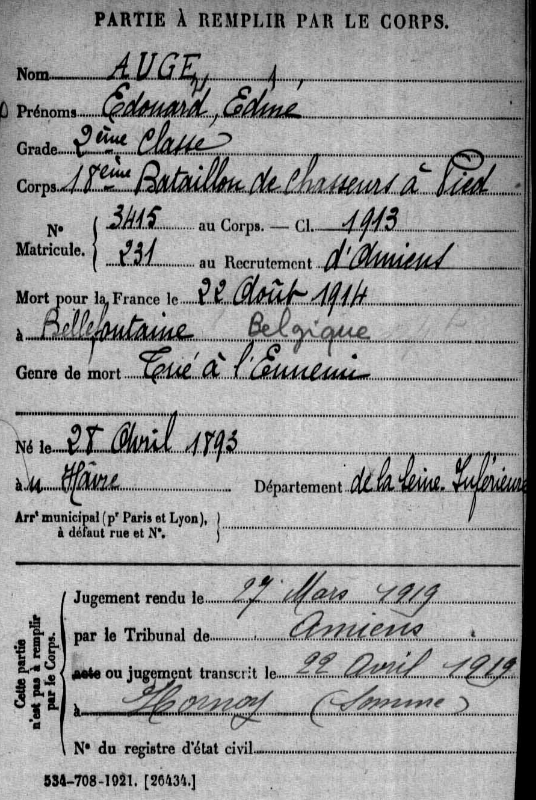 PARTIE À REMPLIR PAR LE CORPS.
Nom AUGÉ,
Prénoms Edouard, Edmé
Grade 2ème Classe
Corps 18ème Bataillon de Chasseurs à Pied
N° Matricule. { 3415 au Corps. — Cl. 1913
231 au Recrutement d'Amiens
Mort pour la France le 22 Août 1914
à Bellefontaine Belgique
Genre de mort Tué à l'Ennemi
Né le 28 Avril 1893
à Hâvre Département de la Seine-Inférieure
Arrt municipal (pr Paris et Lyon), }
à défaut rue et N°.
Cette partie n'est pas à remplir par le Corps.
Jugement rendu le 27 Mars 1919
par le Tribunal de Amiens
acte ou jugement transcrit le 22 Avril 1919
à Hornoy (Somme)
N° du registre d'état civil
534-708-1921. [26434.]